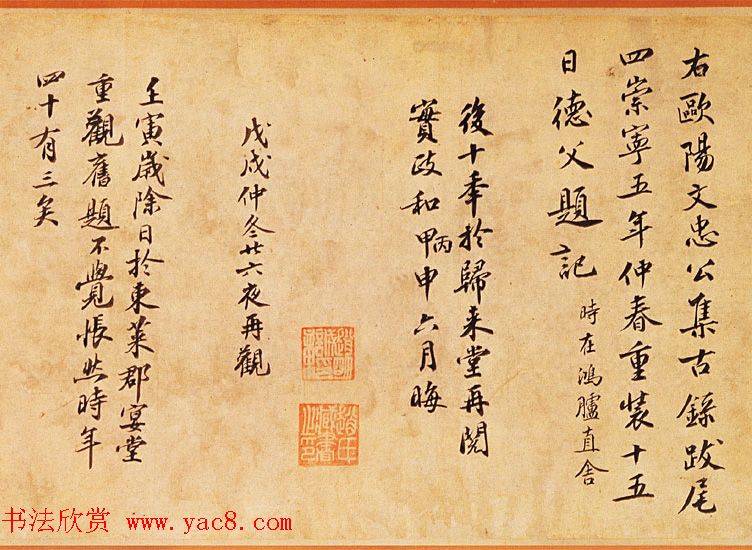 右歐陽文忠公集古錄跋尾
四崇寧五年仲春重裝十五
日德父題記
時在鴻臚直舍
後十秊於歸来堂再閱
實政和甲丙申六月晦
戊戌仲冬廿六夜再觀
壬寅歲除日於東萊郡宴堂
重觀舊題不覺悵然時年
四十有三矣
趙氏藏書之印
书法欣赏 www.yac8.com